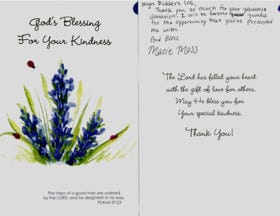 God's Blessing
For Your Kindness
The steps of a good man are ordered
by the LORD: and he delighteth in his way.
PSALM 37:23
Builders Inc,
Thank you so much for your generous
donation. I will be forever grateful
for the opportunity that you've presented
me with.
God Bless
Marie Moss
The Lord has filled your heart
with the gift of love for others.
May He bless you for
Your special kindness.
Thank You!